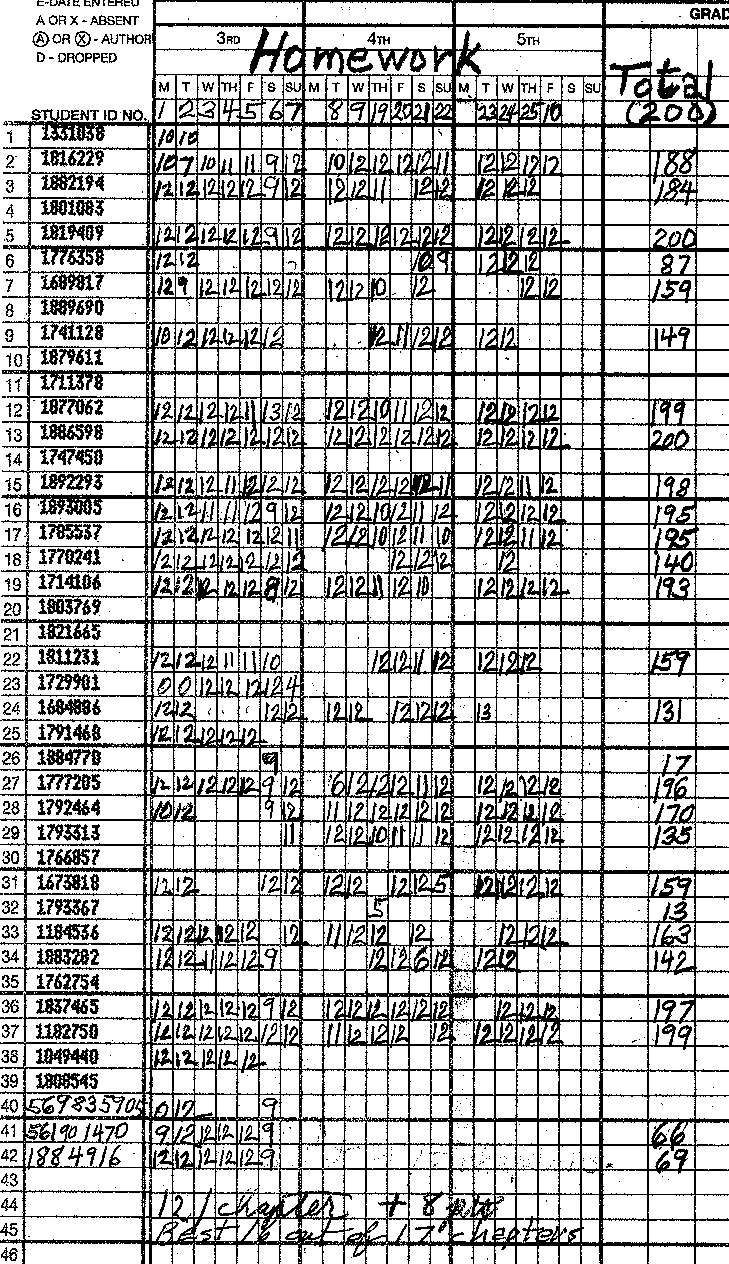 E-DATE ENTERED
A OR X - ABSENT
GRAD
Ⓐ OR Ⓧ - AUTHOR
D - DROPPED
3RD Homework 4TH 5TH
M T W TH F S SU M T W TH F S SU M T W TH F S SU
Total
STUDENT ID NO. 1 2 3 4 5 6 7 8 9 19 20 21 22 23 24 25 10 (200)
1 1331038 10 10
2 1816229 10 7 10 11 11 9 12 10 12 12 12 12 11 12 12 12 12 188
3 1882194 12 12 12 12 12 9 12 12 12 11 12 12 12 12 12 184
4 1801083
5 1819409 12 12 12 12 12 9 12 12 12 12 12 12 12 12 12 12 12 200
6 1776358 12 12 10 9 12 12 12 87
7 1689817 12 9 12 12 12 12 12 12 12 10 12 12 12 159
8 1889690
9 1741128 10 12 12 12 12 12 12 11 12 12 12 12 149
10 1879611
11 1711378
12 1877062 12 12 12 12 11 13 12 12 12 10 11 12 12 12 12 12 12 199
13 1886598 12 12 12 12 12 12 12 12 12 12 12 12 12 12 12 12 12 200
14 1747450
15 1892293 12 12 12 11 12 12 12 12 12 12 12 12 11 12 12 11 12 198
16 1893005 12 12 11 11 12 9 12 12 12 10 12 11 12 12 12 12 12 195
17 1785537 12 12 12 12 12 12 11 12 12 10 12 11 10 12 12 11 12 195
18 1770241 12 12 12 12 12 12 12 12 12 12 12 140
19 1714106 12 12 12 12 12 8 12 12 12 11 12 10 12 12 12 12 193
20 1803769
21 1821665
22 1811231 12 12 12 11 11 10 12 12 11 12 12 12 12 159
23 1729901 0 0 12 12 12 12 4
24 1684886 12 12 12 12 12 12 12 12 12 13 131
25 1791468 12 12 12 12 12
26 1884770 9 17
27 1777205 12 12 12 12 12 9 12 6 12 12 12 11 12 12 12 12 12 196
28 1792464 10 12 9 12 11 12 12 12 12 12 12 12 12 12 170
29 1793313 11 12 12 10 11 11 12 12 12 12 12 135
30 1766857
31 1673818 12 12 12 12 12 12 12 12 5 12 12 12 12 159
32 1793367 5 13
33 1184536 12 12 12 12 12 12 11 12 12 12 12 12 12 163
34 1883202 12 12 11 12 12 9 12 12 6 12 12 12 142
35 1762754
36 1837465 12 12 12 12 12 9 12 12 12 12 12 12 12 12 12 12 197
37 1182750 12 12 12 12 12 12 12 11 12 12 12 12 12 12 12 12 199
38 1849440 12 12 12 12 12
39 1808545
40 569835905 0 12 9
41 561901470 9 12 12 12 12 9 66
42 1884916 12 12 12 12 12 9 69
43
44 12 / chapter + 8 pts
45 Best 16 out of 17 chapters
46